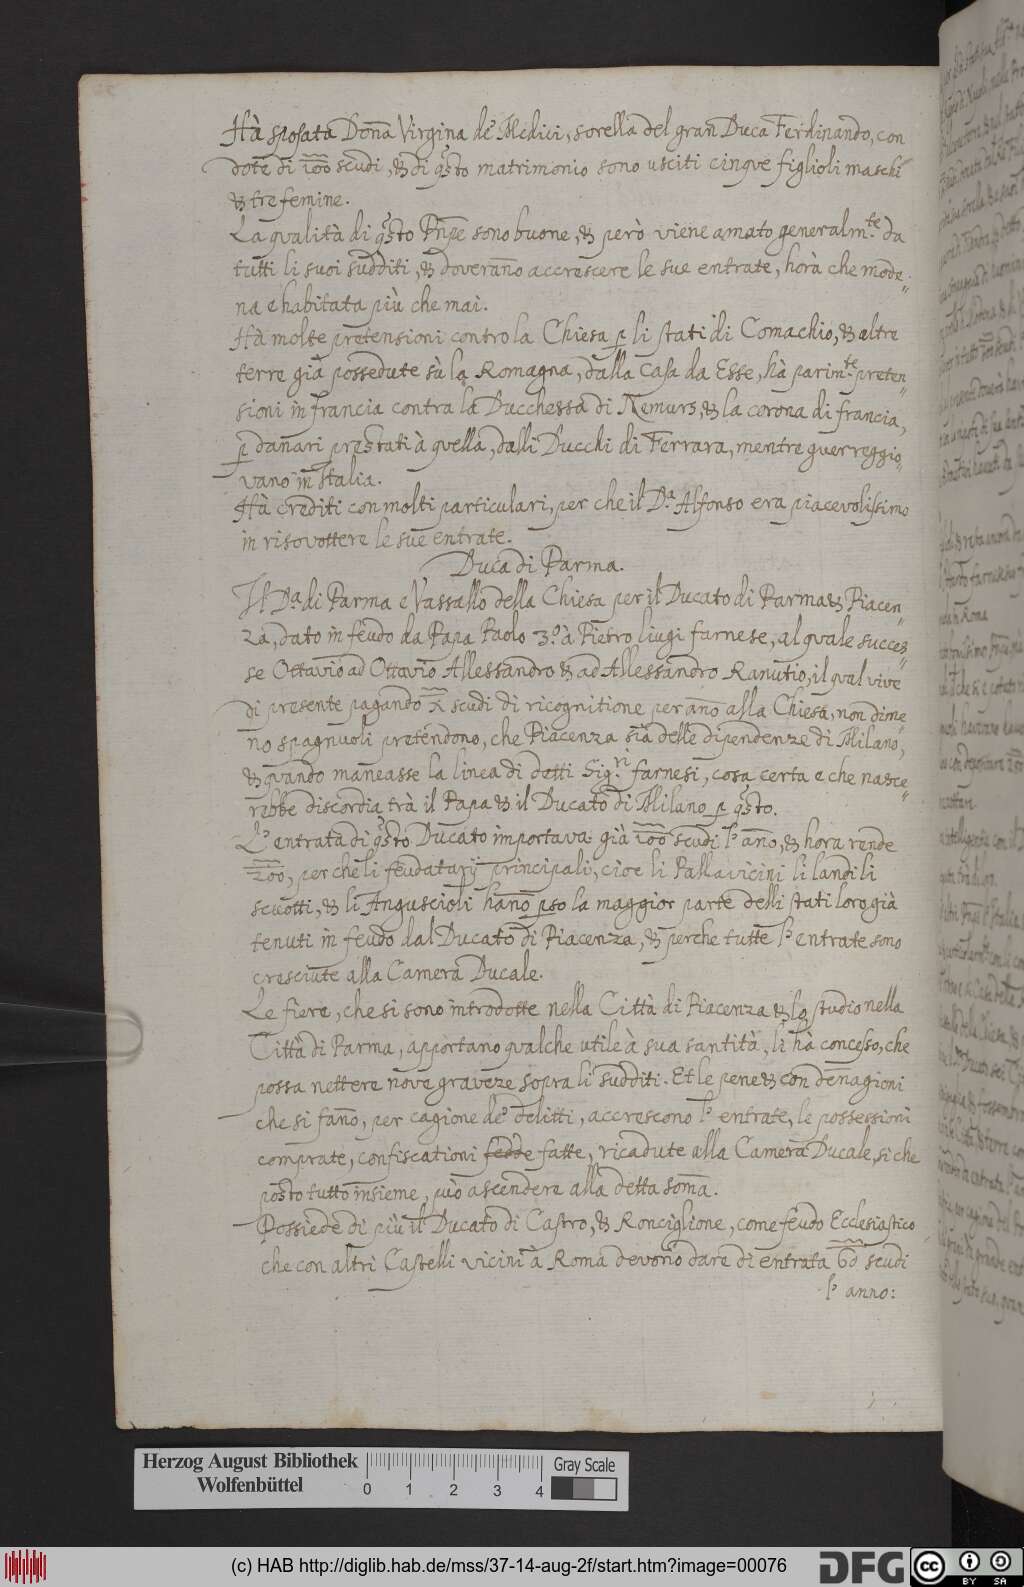 Hà sposata Dona Virgina de' Medici, sorella del gran Duca Ferdinando, con
dote di 100 scudi, & di qsto matrimonio sono usciti cinque figlioli maschi
& tre femine.
La qualità di qsto Pnpe sono buone, & però viene amato generalm.te da
tutti li suoi sudditi, & doverano accrescere le sue entrate, horà che mode„
na e habitata più che mai.
Hà molte pretensioni contro la Chiesa p li stati di Comachio, & altre
terre già possedute sù la Romagna, dalla Casa da Esse, hà parim.te preten„
sioni in francia contra la Ducchessa di Nemurs, & la corona di francia,
p danari prestati à quella, dalli Ducchi di Ferrara, mentre guerreggio„
vano in Italia.
Hà crediti con molti particulari, per che il D.a Alfonso era piacevolissimo
in risovottere le sue entrate.
Duca di Parma.
Il D.a di Parma e Vassallo della Chiesa per il Ducato di Parma & Piacen„
za, dato in feudo da Papa Paolo 3.o à Pietro liugi farnese, al quale succes„
se Ottavio ad Ottavio Allessandro & ad Allessandro Ranutio, il qual vive
di presente pagando X scudi di ricognitione per ano alla Chiesa, non dime„
no spagnuoli pretendono, che Piacenza sia delle dipendenze di Milano,
& quando maneasse la linea di detti Sig.ri farnesi, cosa certa e che nasce„
rebbe discordia trà il Papa & il Ducato di Milano p qsto.
L' entrata di qsto Ducato importava già 100 scudi l' ano, & hora rende
200, perche li feudatarij principali, cioe li Pallavicini li landi li
scuotti, & li Anguscioli hano pso la maggior parte delli stati loro già
tenuti in feudo dal Ducato di Piacenza, & perche tutte l' entrate sono
cresciute alla Camera Ducale.
Le fiere, che si sono introdotte nella Città di Piacenza & lo studio nella
Città di Parma, apportano qualche utile à sua santità, li hà concesso, che
possa nettere nove graveze sopra li sudditi. Et le pene & con denagioni
che si fano, per cagione de' delitti, accrescono l' entrate, le possessioni
comprate, confiscationi fedde fatte, ricadute alla Camera Ducale, si che
posto tutto insieme, può ascendere alla detta soma.
Possiede di più il Ducato di Castro, & Ronciglione, come feudo Ecclesiastico
che con altri Castelli vicini à Roma devono dare di entrata 60 scudi
l' anno:
Herzog August Bibliothek
Wolfenbüttel
0 1 2 3 4
Gray Scale
(c) HAB http://diglib.hab.de/mss/37-14-aug-2f/start.htm?image=00076
DFG
cc BY SA